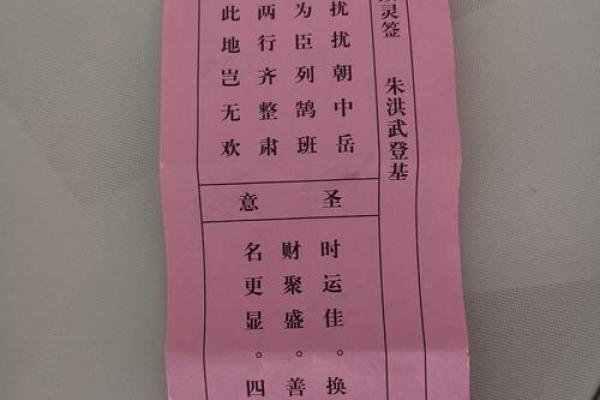 灵签 朱洪武登基
扰扰朝中岳
为臣列鹄班
两行齐整肃
此地岂无欢
圣意
时运佳。换
财聚盛。善
名更显。四